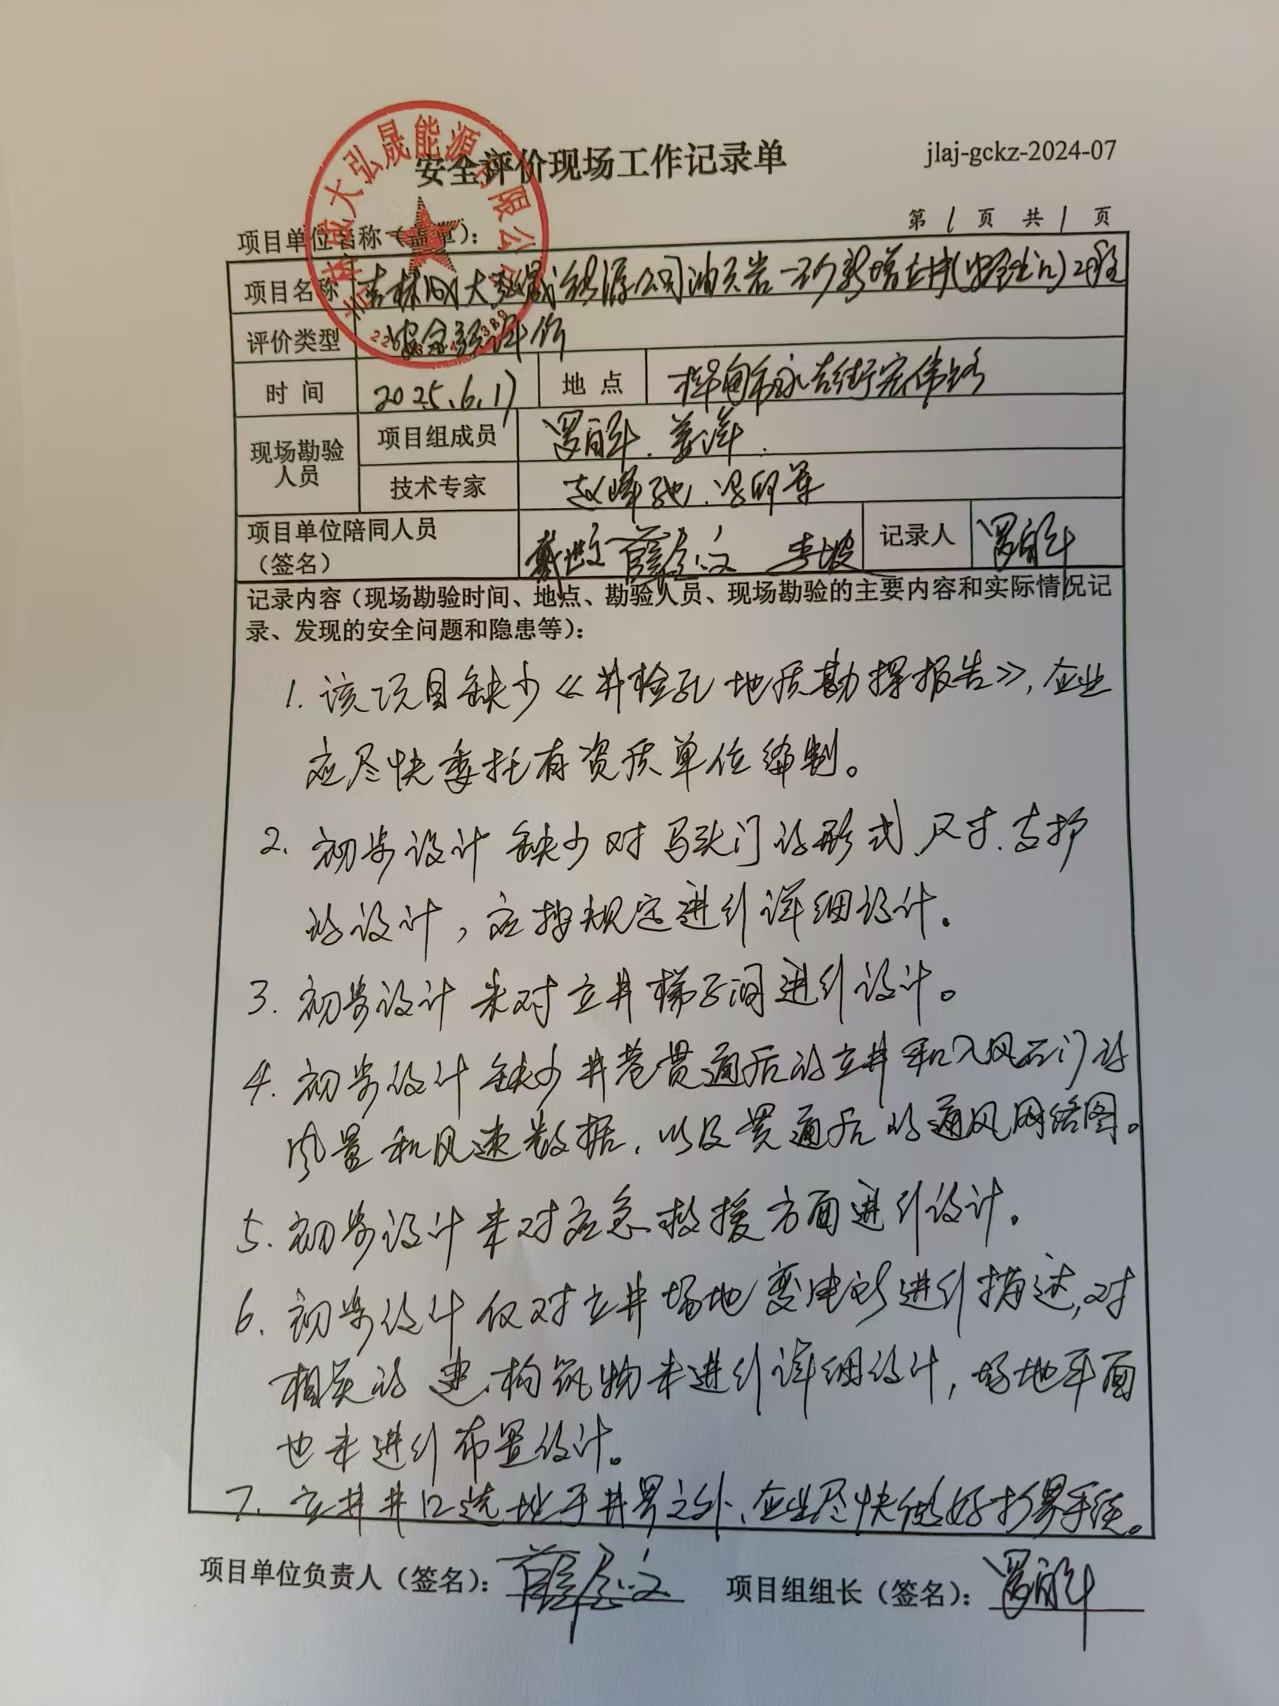 吉林成大弘晟能源有限公司
安全评价现场工作记录单
jlaj-gckz-2024-07
第 1 页 共 1 页
项目单位名称（盖章）：
项目名称 吉林成大弘晟能源公司油页岩一矿新增立井(安全出口)工程
评价类型 安全预评价
时 间 2025.6.17 地 点 桦甸市永吉街宏伟路
现场勘验人员 项目组成员
技术专家
项目单位陪同人员
（签名） 记录人
记录内容（现场勘验时间、地点、勘验人员、现场勘验的主要内容和实际情况记
录、发现的安全问题和隐患等）：
1. 该项目缺少《井检孔地质勘探报告》，企业
应尽快委托有资质单位编制。
2. 初步设计缺少对马头门的形式、尺寸、支护
的设计，应按规定进行详细设计。
3. 初步设计未对立井梯子间进行设计。
4. 初步设计缺少井巷贯通后的立井和入风石门的
风量和风速数据，以及贯通后的通风网络图。
5. 初步设计未对应急救援方面进行设计。
6. 初步设计仅对立井场地变电所进行描述，对
相关的建、构筑物未进行详细设计，场地平面
也未进行布置设计。
7. 立井井口选址于井界之外，企业尽快做好扩界手续。
项目单位负责人（签名）： 项目组组长（签名）：